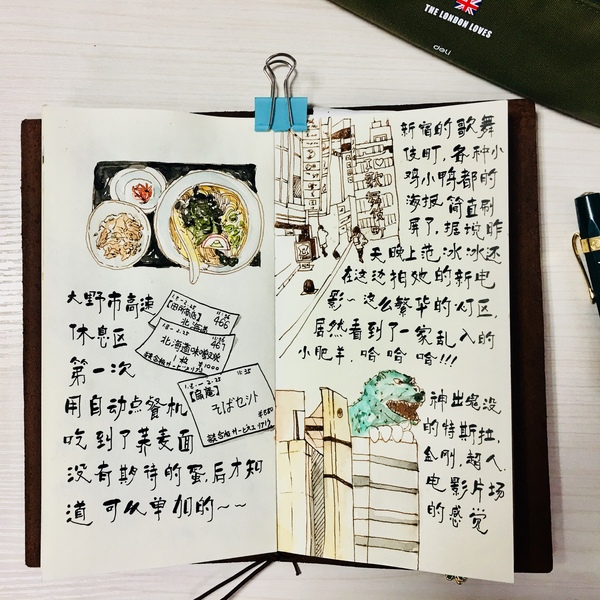 THE LONDON LOVES
deli
大野市高速
休息区
第一次
用自动点餐机
吃到了荞麦面
没有期待的蛋,后才知
道 可以单加的~~
466
北海道
467
北海道味噌
1枚 ¥1000
11:35
そばセット
歌舞伎
新宿的歌舞
伎町,各种小
鸡小鸭都的
海报,简直刷
屏了,据说昨
天晚上范冰冰还
在这边拍她的新电
影~ 这么繁华的灯区,
居然看到了一家乱入的
小肥羊,哈哈哈!!!
神出鬼没
的特斯拉,
金刚,超人,
电影片场
的感觉